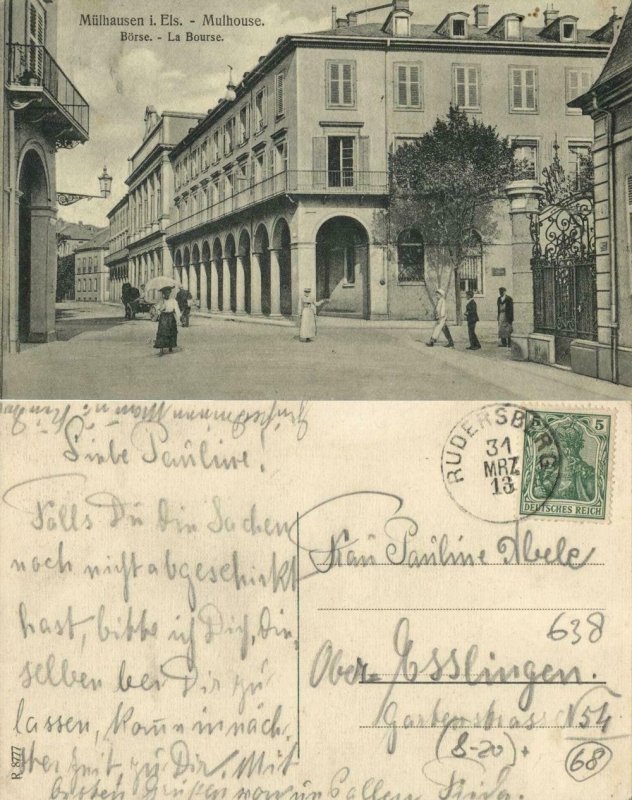 Mülhausen i. Els. - Mulhouse.
Börse. - La Bourse.
Liebe Pauline!
Falls Du die Sachen
noch nicht abgeschickt
hast, bitte ich Dich, die-
selben bei Dir zu
lassen, komme in näch-
ster Zeit zu Dir. Mit
besten Grüßen von uns allen
RUDERSBERG
31
MRZ
13
5 5
DEUTSCHES REICH
Frau Pauline Abele
638
Ober-Esslingen.
Gartenstrasse N54
(8-20)+
68
R 8777